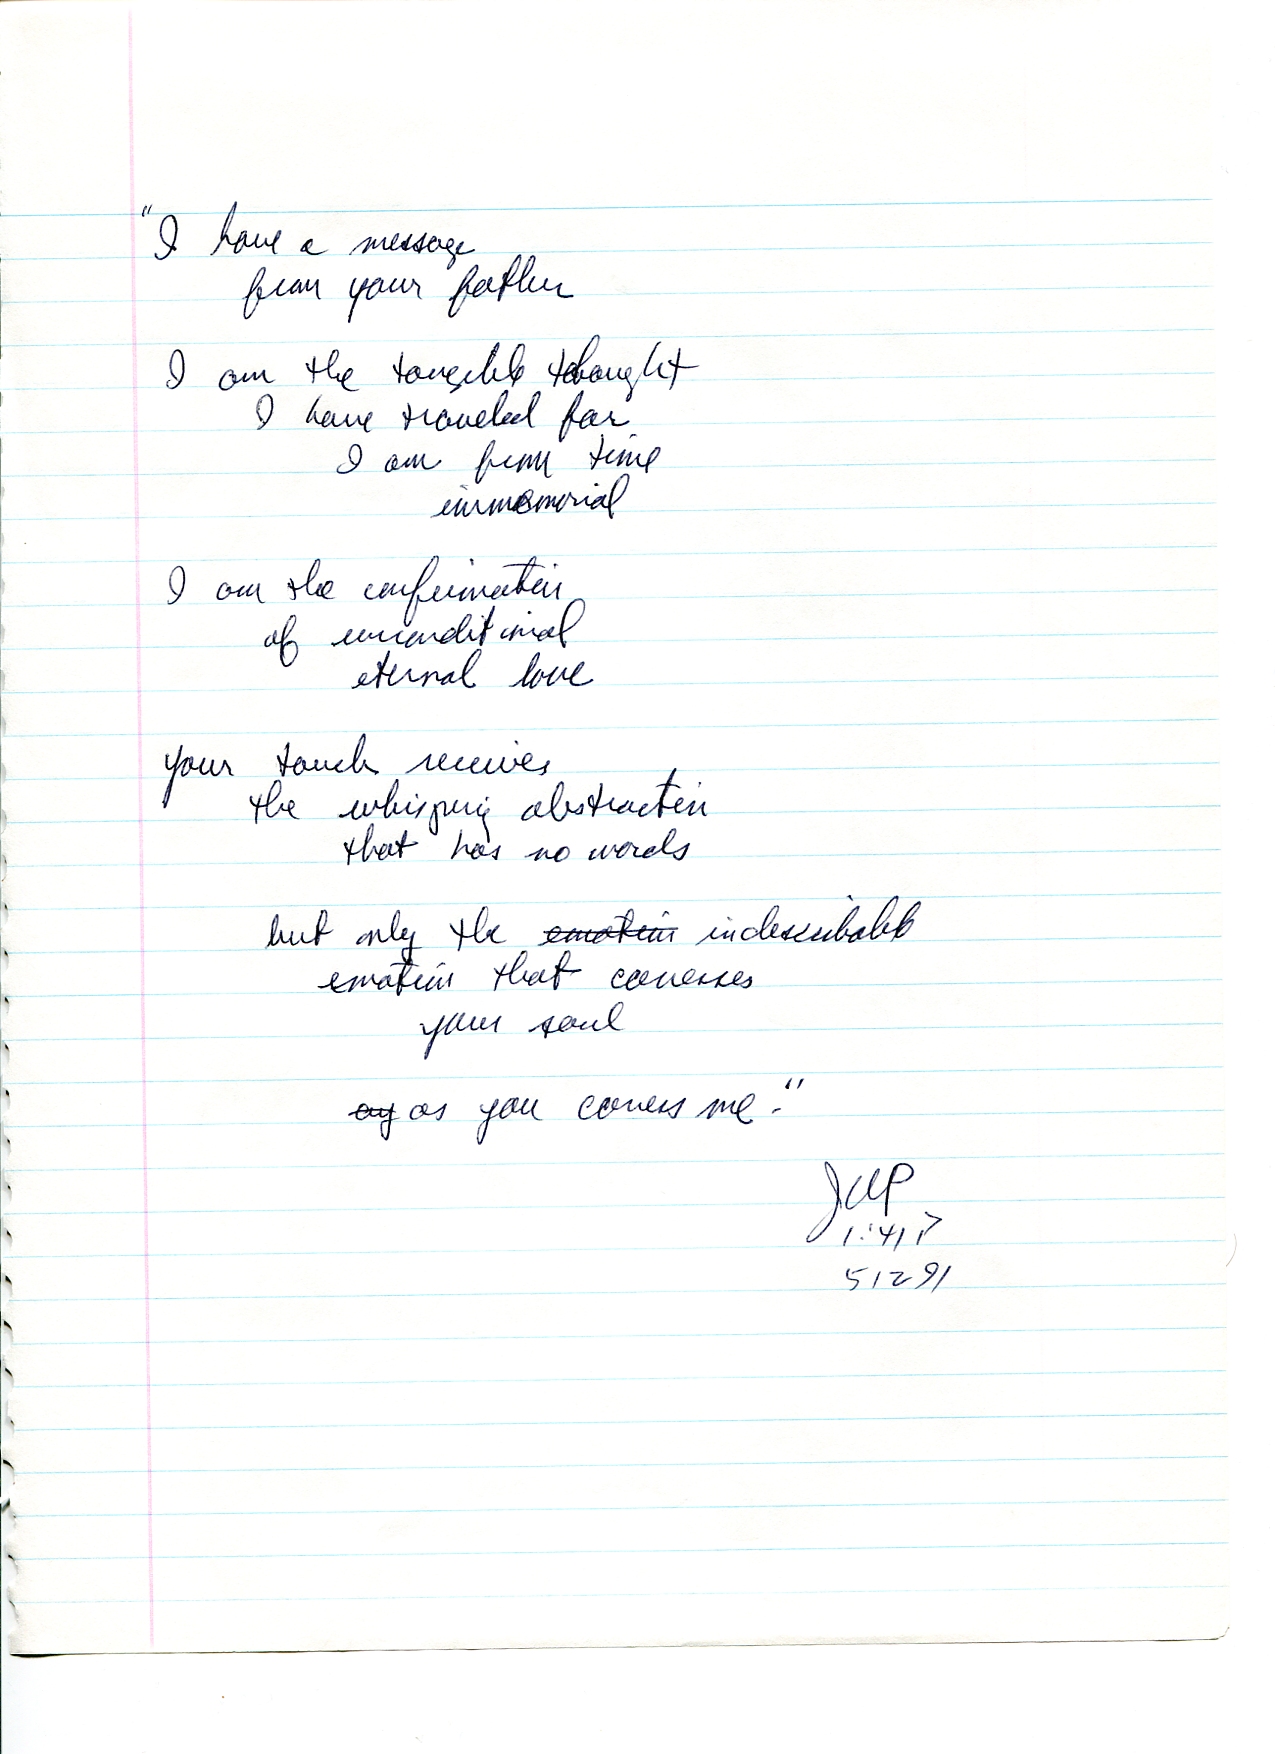 "I have a message
from your father
I am the tangible thought
I have traveled far
I am from time
immemorial
I am the confirmation
of unconditional
eternal love
your touch receives
the whispring abstraction
that has no words
but only the emotion indescribable
emotion that caresses
your soul
as you caress me."
JWP
1:41P
51291